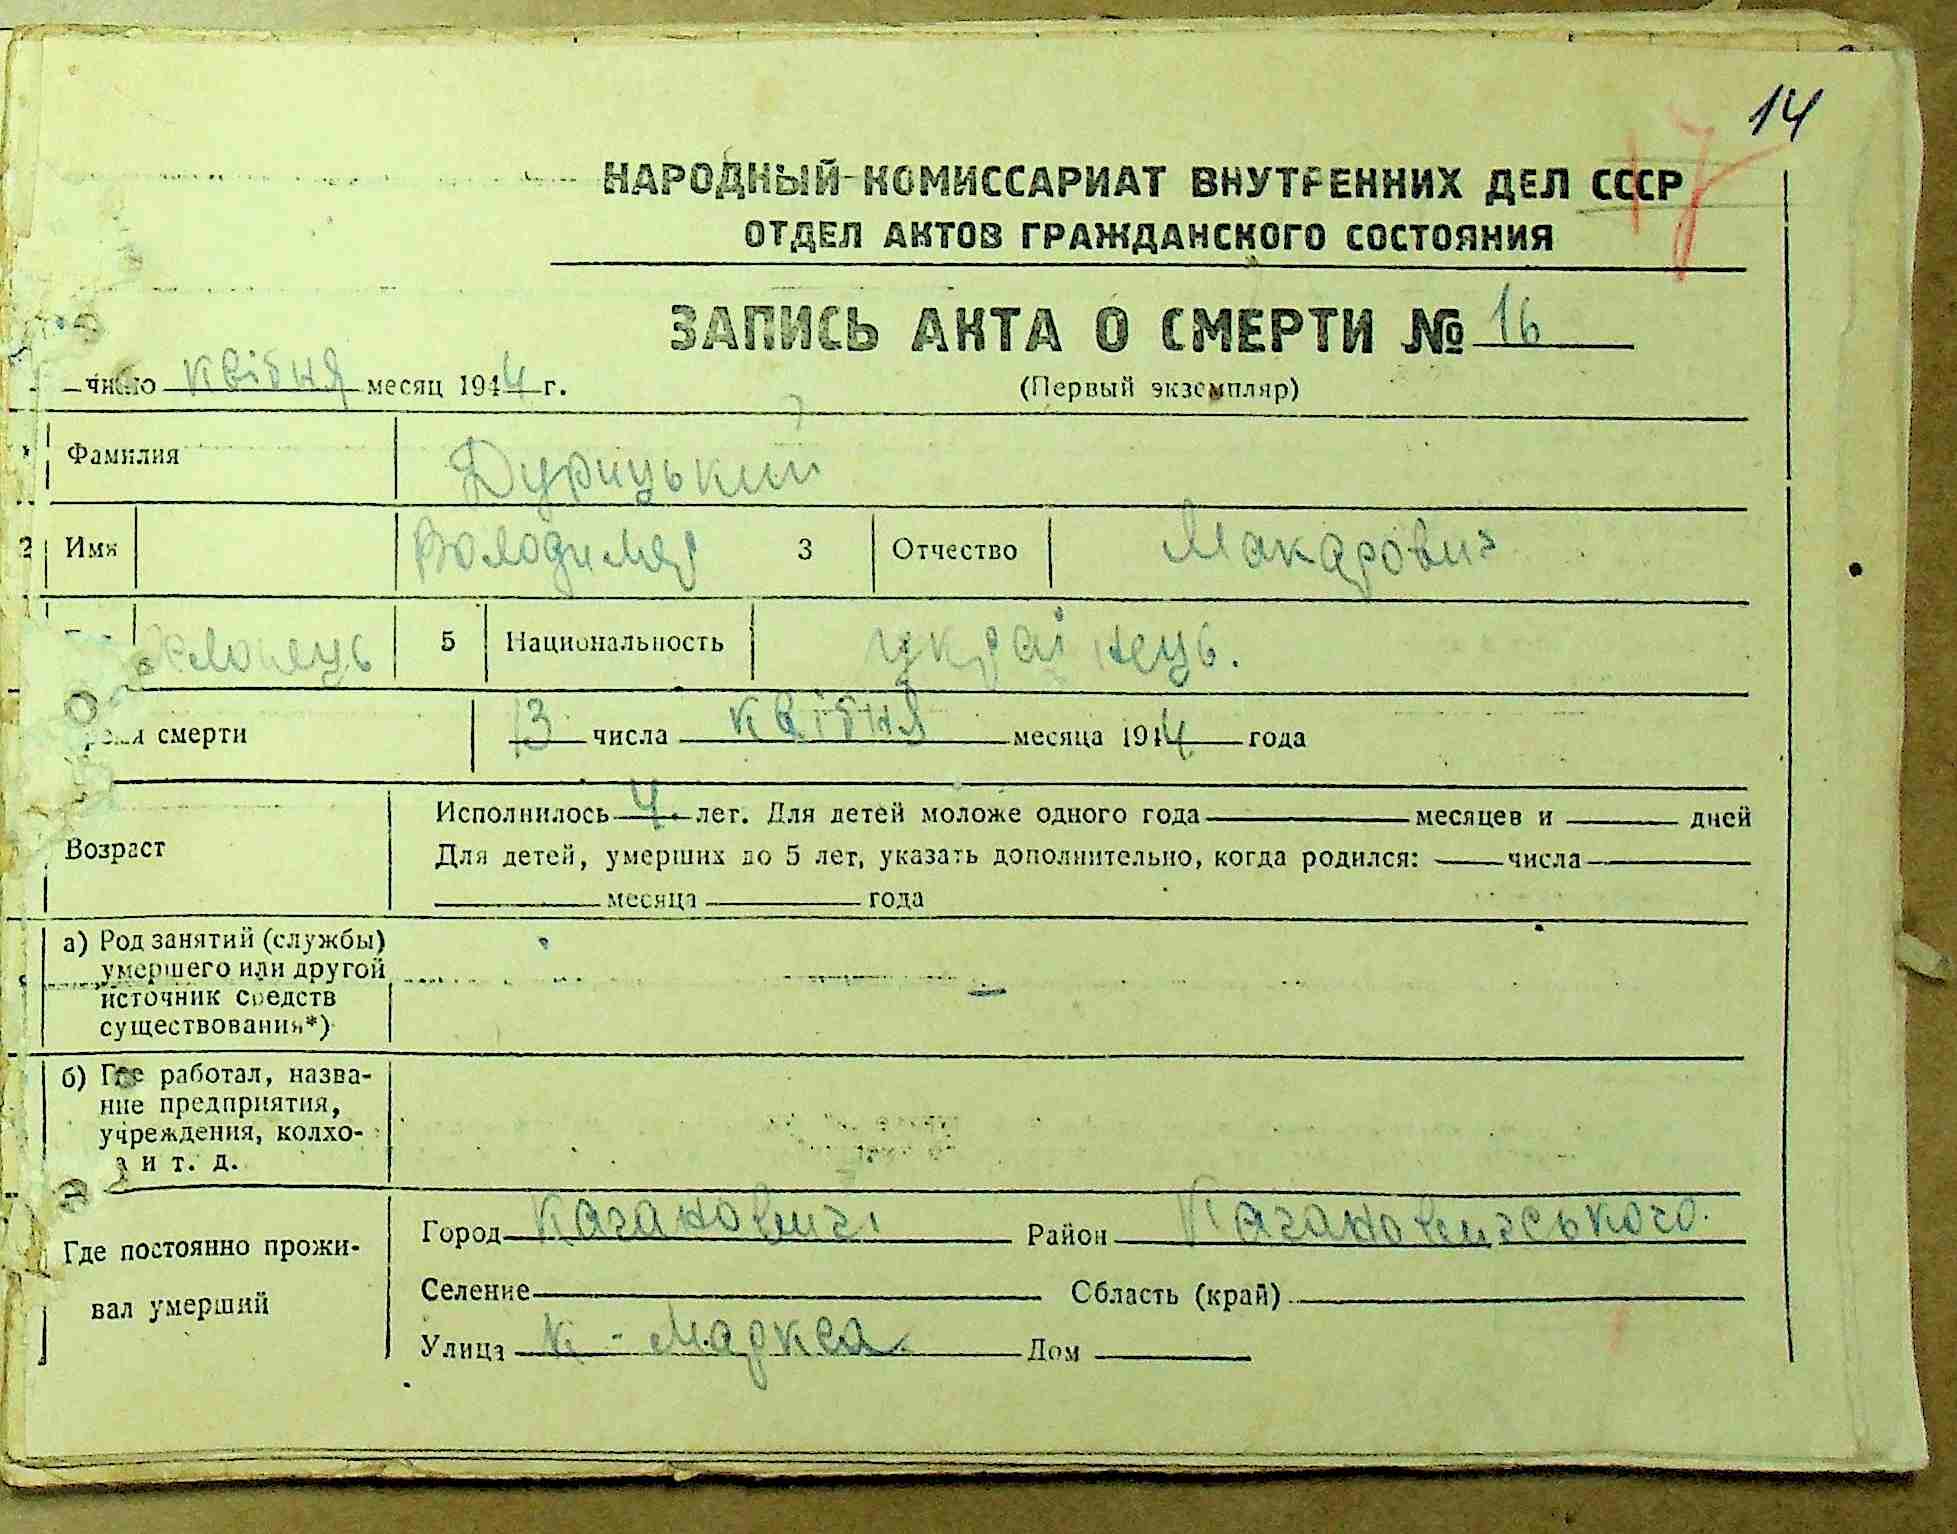 14
17
НАРОДНЫЙ КОМИССАРИАТ ВНУТРЕННИХ ДЕЛ СССР
ОТДЕЛ АКТОВ ГРАЖДАНСКОГО СОСТОЯНИЯ
ЗАПИСЬ АКТА О СМЕРТИ № 16
число квітня месяц 1944 г.
(Первый экземпляр)
Фамилия Дурицький
2 Имя Володимер 3 Отчество Макарович
хлопець 5 Национальность українець.
смерти 13 числа квітня месяца 1944 года
Возраст
Исполнилось 4 лет. Для детей моложе одного года месяцев и дней
Для детей, умерших до 5 лет, указать дополнительно, когда родился: числа
месяца года
а) Род занятий (службы)
умершего или другой
источник средств
существования*) —
б) Где работал, назва-
ние предприятия,
учреждения, колхо-
а и т. д.
Где постоянно прожи-
вал умерший
Город Кагановичі Район Кагановичського.
Селение Область (край)
Улица К - Маркса Дом